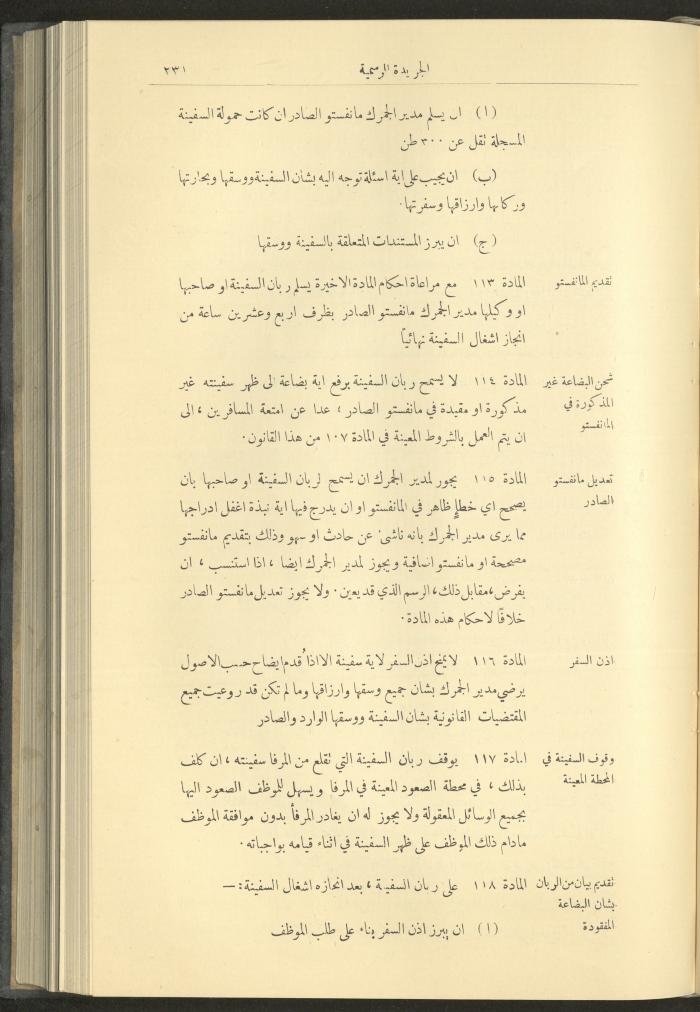 الجريدة الرسمية
٢٣١
(ا) ان يسلم مدير الجمرك مانفستو الصادر ان كانت حمولة السفينة
المسجلة تقل عن ٣٠٠ طن
(ب) ان يجيب على اية اسئلة توجه اليه بشان السفينة ووسقها وبحارتها
وركابها وارزاقها وسفرتها.
(ج) ان يبرز المستندات المتعلقة بالسفينة ووسقها
تقديم المانفستو
المادة ١١٣ مع مراعاة احكام المادة الاخيرة يسلم ربان السفينة او صاحبها
او وكيلها مدير الجمرك مانفستو الصادر بظرف اربع وعشرين ساعة من
انجاز اشغال السفينة نهائياً
شحن البضاعة غير
المذكورة في
المانفستو
المادة ١١٤ لا يسمح ربان السفينة برفع اية بضاعة الى ظهر سفينته غير
مذكورة او مقيدة في مانفستو الصادر، عدا عن امتعة المسافرين، الى
ان يتم العمل بالشروط المعينة في المادة ١٠٧ من هذا القانون.
تعديل مانفستو
الصادر
المادة ١١٥ يجوز لمدير الجمرك ان يسمح لربان السفينة او صاحبها بان
يصحح اي خطإ ظاهر في المانفستو او ان يدرج فيها اية نبذة اغفل ادراجها
مما يرى مدير الجمرك بانه ناشئ عن حادث او سهو وذلك بتقديم مانفستو
مصححة او مانفستو اضافية ويجوز لمدير الجمرك ايضا، اذا استنسب، ان
يفرض، مقابل ذلك، الرسم الذي قد يعين. ولا يجوز تعديل مانفستو الصادر
خلافاً لاحكام هذه المادة.
اذن السفر
المادة ١١٦ لا يمنح اذن السفر لاية سفينة الا اذا قُدم ايضاح حسب الاصول
يرضي مدير الجمرك بشان جميع وسقها وارزاقها وما لم تكن قد روعيت جميع
المقتضيات القانونية بشان السفينة ووسقها الوارد والصادر
وقوف السفينة في
المحطة المعينة
المادة ١١٧ يوقف ربان السفينة التي تقلع من المرفا سفينته، ان كلف
بذلك، في محطة الصعود المعينة في المرفا ويسهل للموظف الصعود اليها
بجميع الوسائل المعقولة ولا يجوز له ان يغادر المرفأ بدون موافقة الموظف
مادام ذلك الموظف على ظهر السفينة في اثناء قيامه بواجباته.
تقديم بيان من الربان
بشان البضاعة
المفقودة
المادة ١١٨ على ربان السفينة، بعد انجازه اشغال السفينة:—
(ا) ان يبرز اذن السفر بناء على طلب الموظف